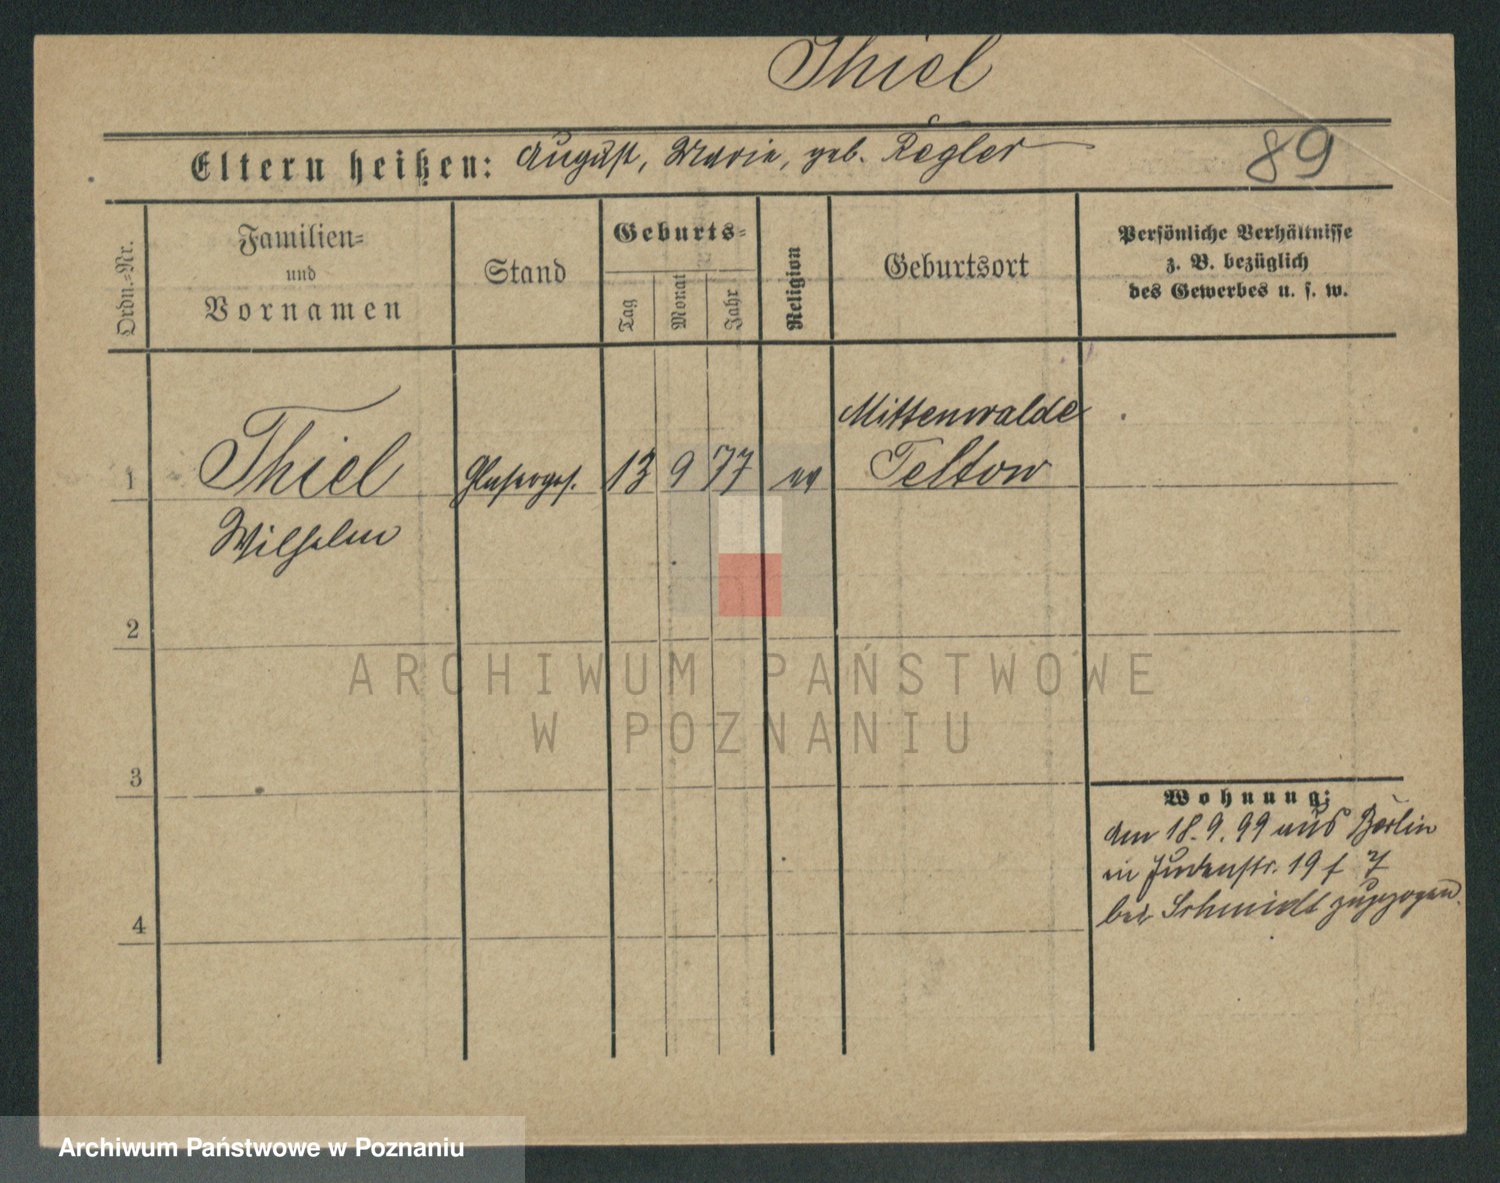 Thiel
Eltern heißen: August, Marie, geb. Regler
89
Ordn.-Nr.
Familien-
und
Vornamen
Stand
Geburts-
Tag
Monat
Jahr
Religion
Geburtsort
Persönliche Verhältnisse
z. B. bezüglich
des Gewerbes u. s. w.
Mittenwalde
1 Thiel Glaserges. 13 9 77 ev Teltow
Wilhelm
2
ARCHIWUM PAŃSTWOWE
W POZNANIU
3
Wohnung:
am 18.9.99 aus Berlin
in Judenstr. 19
4
bei Schmidt zugezogen.
Archiwum Państwowe w Poznaniu